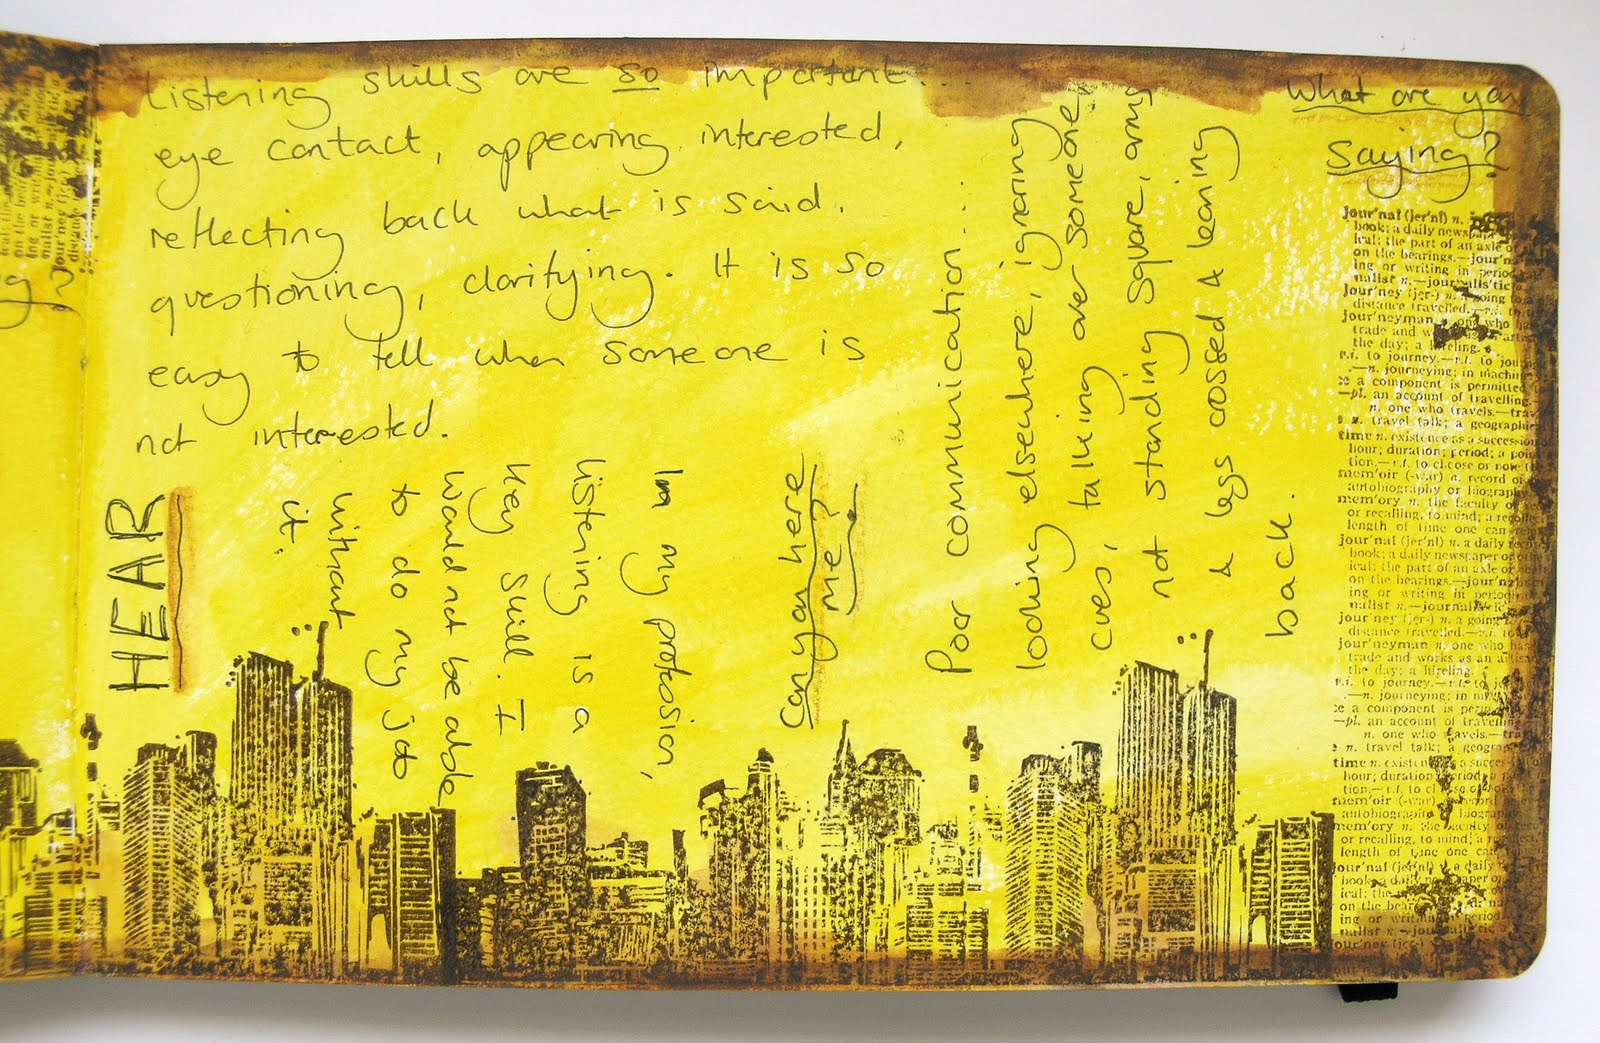 Listening skills are so important...
eye contact, appearing interested,
reflecting back what is said,
questioning, clarifying. It is so
easy to tell when someone is
not interested.
HEAR
In my profession,
listening is a
key skill. I
would not be able
to do my job
without
it.
Can you here
me?
Poor communication...
looking elsewhere, ignoring
cues, talking over someone,
not standing square, arms
& legs crossed & leaning
back.
What are you
saying?
jour'nal (jer'nl) n.
book; a daily
ical: the part of an axle
on the bearings.—jour'n
ing or writing in
nalist n.—journalis'tic
jour'ney (jer-) n. a going to
distance travelled.
jour'neyman n. one who
trade and
the day; a hireling.
v.i. to journey.—v.t. to
—n. journeying; in
a component is permitted
—pl. an account of travelling.
n. one who travels.—
n. travel talk; a
time n. existence as a succession
hour; duration; period; a
tion.—v.t. to choose or note
mem'oir (-war) n. a record of
autobiography or
mem'ory n. the faculty of
or recalling, to mind; a
length of time one can
jour'nal (jer'nl) n. a daily
book; a daily newspaper or
ical: the part of an axle
on the bearings.—jour'n
ing or writing in
nalist n.—
jour'ney (jer-) n. a going
distance travelled.
jour'neyman n. one who
trade and works as an
the day; a hireling.
v.i. to journey.—v.t. to
—n. journeying; in
a component is
—pl. an account of
n. one who travels.—
n. travel talk; a
time n.
hour; duration; period; a
tion.—v.t. to
mem'oir (-war)
autobiography
mem'ory n. the faculty
or recalling, to mind; a
length of time one
jour'nal (jer'nl) n. a daily
book; a daily
ical: the
on the
ing or
nalist n.—
jour'ney (jer-) n.